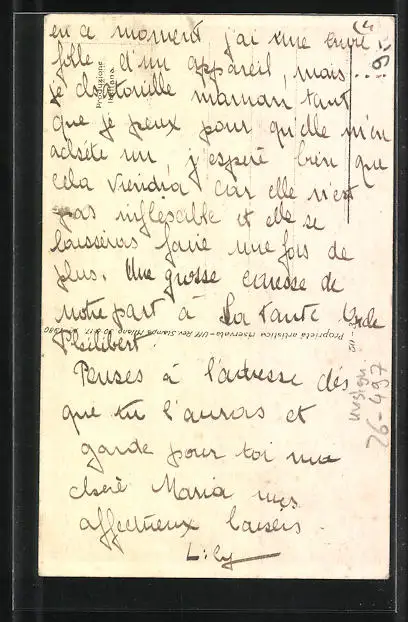 en a moment j'ai une envie
folle d'un appareil, mais...
je chatouille maman tant
que je peux pour qu'elle m'en
achète un, j'espère bien que
cela viendra car elle n'est
pas inflexible et elle se
laissera faire une fois de
plus. Une grosse caresse de
notre part à la tante
Philibert.
Penses à l'adresse dès
que tu l'auras et
garde pour toi ma
chère Maria mes
affectueux baisers.
Lily
Produzione
Italiana
Proprietà artistica riservata - Uff. Rev. Stampa Milano
26-497